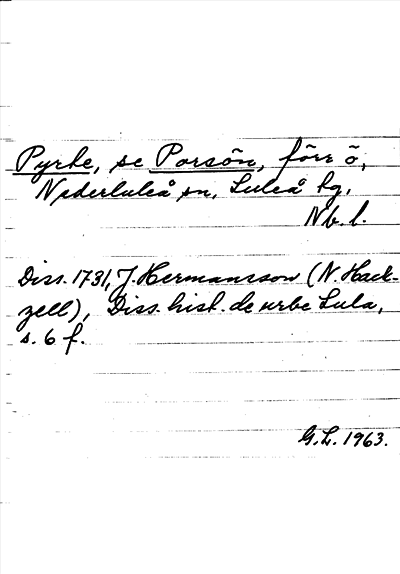 Pyrke, se Porsön, förr ö,
Nederluleå sn, Luleå tg,
Nb. l.
Diss. 1731, J. Hermansson (N. Hack-
zell), Diss. hist. de urbe Lula,
s. 6 f.
G.L. 1963.